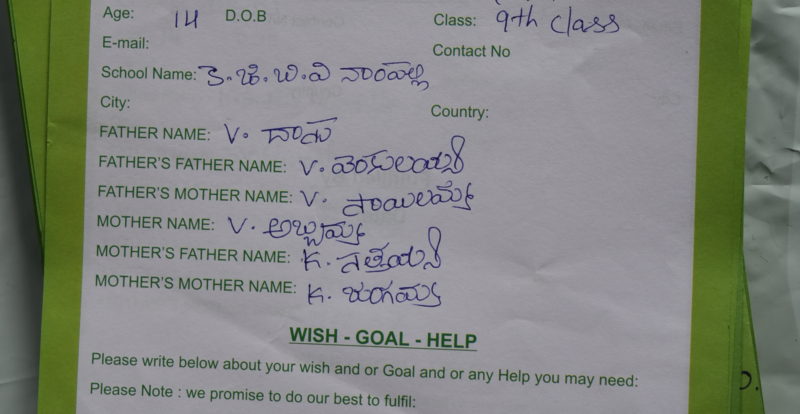 Age: 14 D.O.B Class: 9th class
E-mail: Contact No
School Name: కె.జి.బి.వి నాంపల్లి
City: Country:
FATHER NAME: V. దాసు
FATHER'S FATHER NAME: V.
FATHER'S MOTHER NAME: V. సాయిలమ్మ
MOTHER NAME: V.
MOTHER'S FATHER NAME: K. సత్తయ్య
MOTHER'S MOTHER NAME: K. జంగమ్మ
WISH - GOAL - HELP
Please write below about your wish and or Goal and or any Help you may need:
Please Note : we promise to do our best to fulfil: